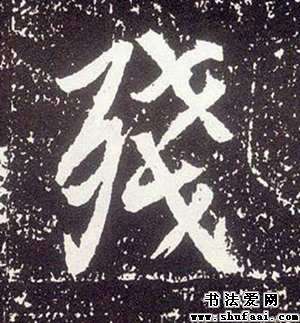 殘
书法爱网
www.shufaai.com